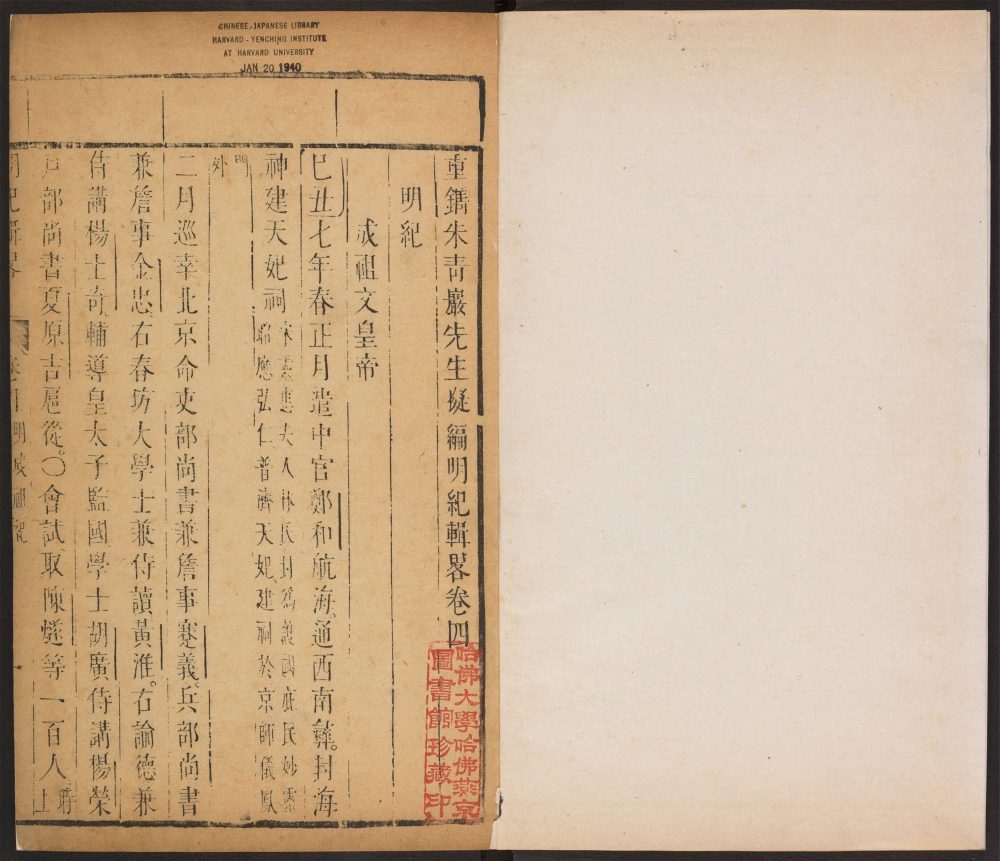 CHINESE-JAPANESE LIBRARY
HARVARD-YENCHING INSTITUTE
AT HARVARD UNIVERSITY
JAN 20 1940
重鐫朱青巖先生擬編明紀輯畧卷四
明紀
成祖文皇帝
己丑七年春正月遣中官鄭和航海通西南彜。封海
神建天妃祠宋靈惠夫人林氏封爲護國庇民妙靈
昭應弘仁普濟天妃建祠於京師儀鳳
門
外
二月巡幸北京命吏部尚書兼詹事蹇義兵部尚書
兼詹事金忠右春坊大學士兼侍讀黃淮。右諭德兼
侍講楊士奇輔導皇太子監國學士胡廣侍講楊榮
戶部尚書夏原吉扈從。〇會試取陳燧等一百人時上
明紀輯畧
卷四
明成祖紀
哈佛大學哈佛燕京
圖書館珍藏印